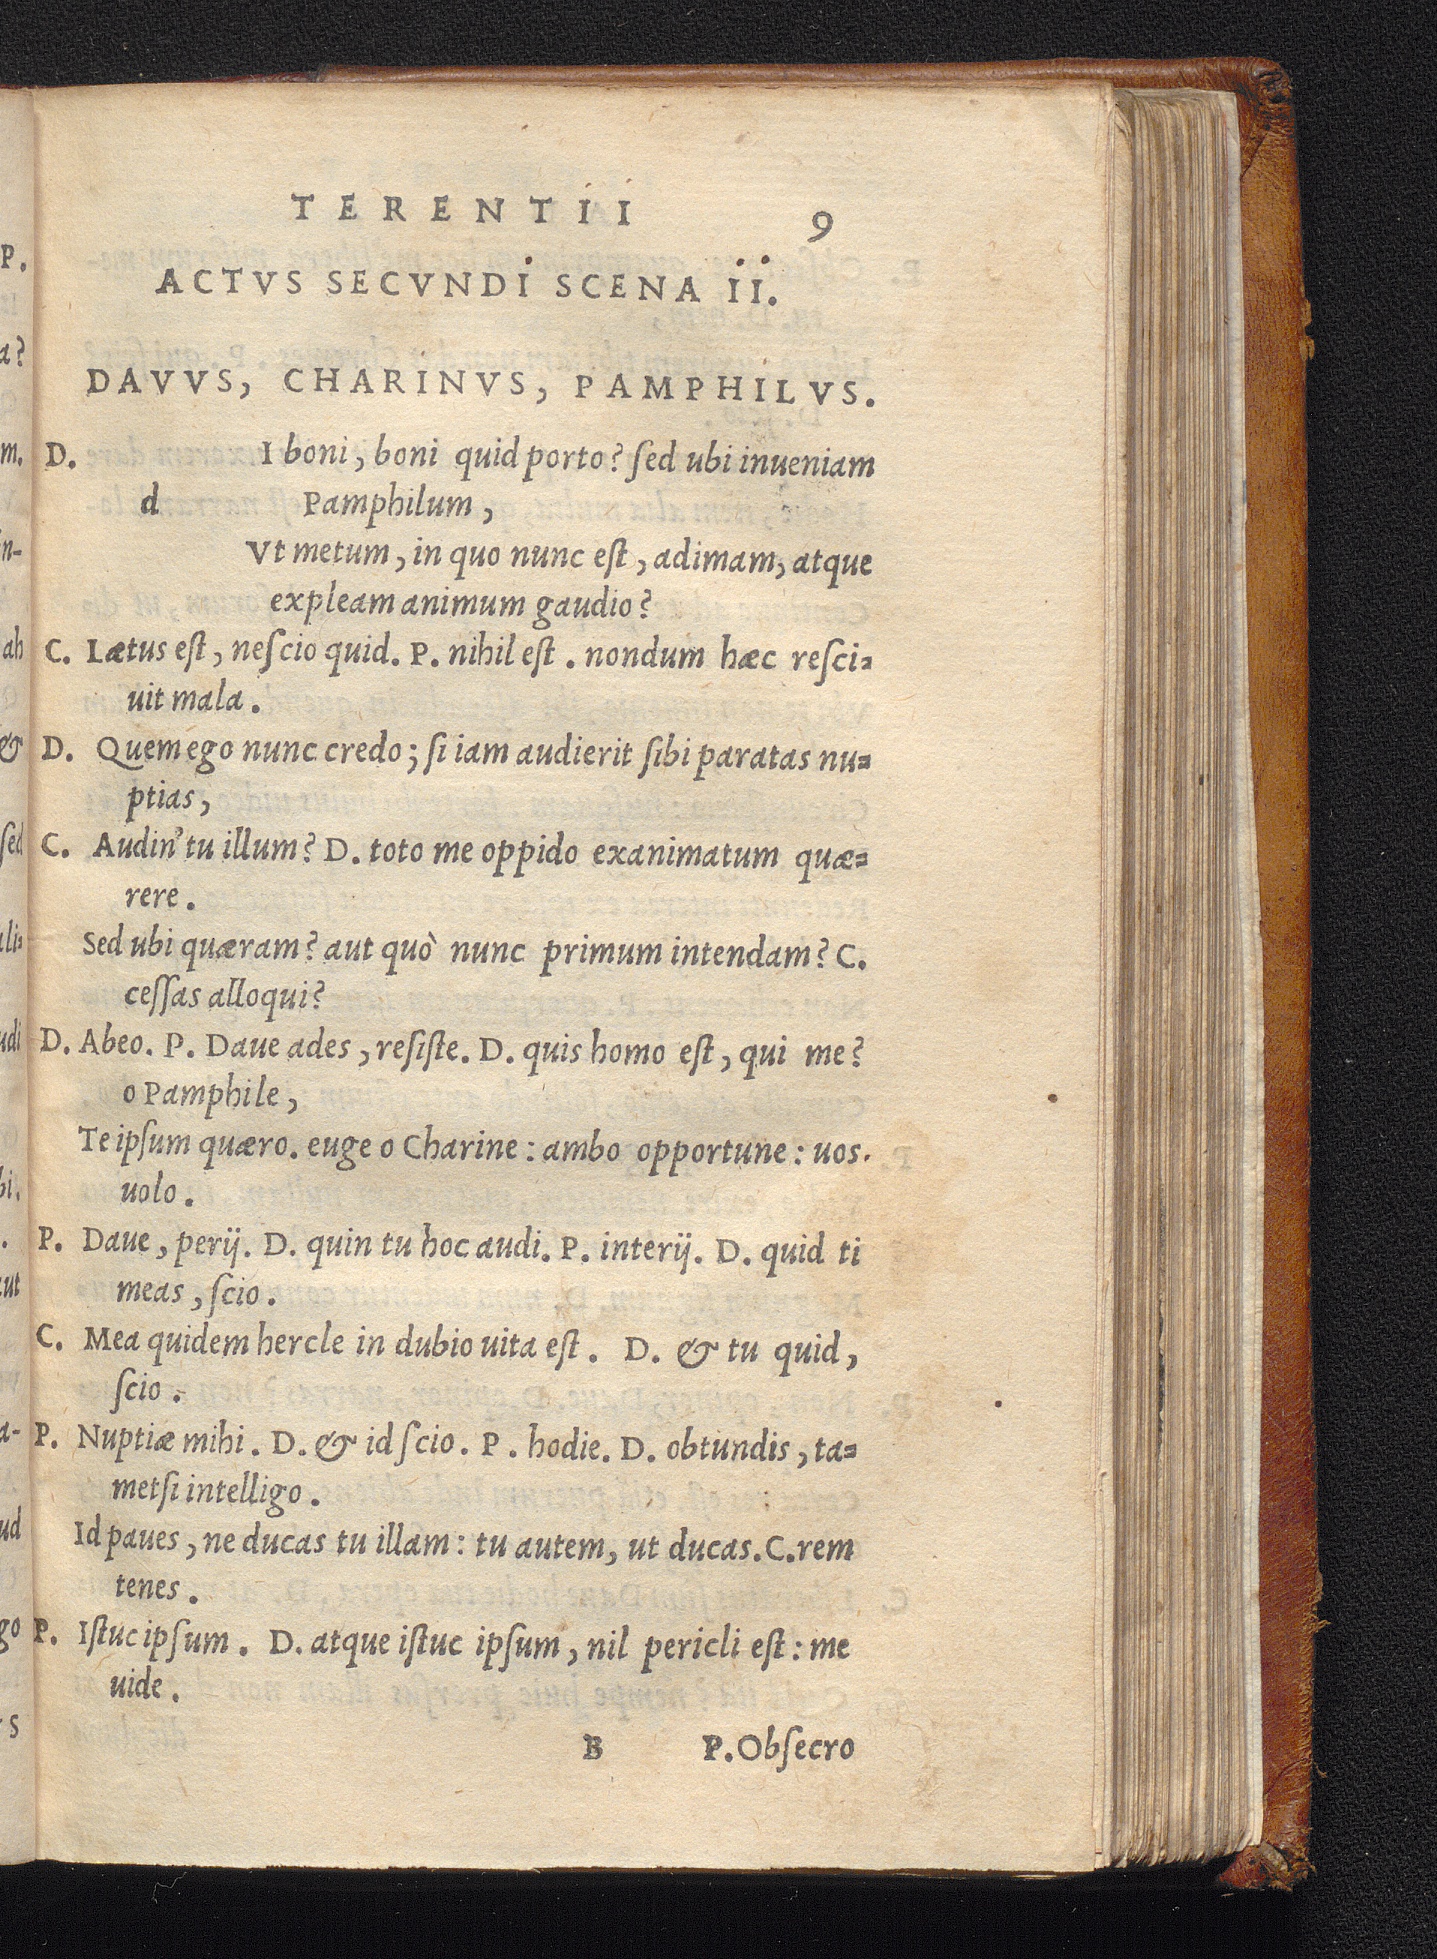 TERENTII 9
ACTVS SECVNDI SCENA II.
DAVVS, CHARINVS, PAMPHILVS.
D. I boni, boni quid porto? ſed ubi inueniam
d Pamphilum,
Vt metum, in quo nunc eſt, adimam, atque
expleam animum gaudio?
C. Lætus eſt, neſcio quid. P. nihil eſt. nondum hæc reſci=
uit mala.
D. Quem ego nunc credo; ſi iam audierit ſibi paratas nu=
ptias,
C. Audin' tu illum? D. toto me oppido exanimatum quæ=
rere.
Sed ubi quæram? aut quò nunc primum intendam? C.
ceſſas alloqui?
D. Abeo. P. Daue ades, reſiſte. D. quis homo eſt, qui me?
o Pamphile,
Te ipſum quæro. euge o Charine: ambo opportune: uos.
uolo.
P. Daue, perij. D. quin tu hoc audi. P. interij. D. quid ti
meas, ſcio.
C. Mea quidem hercle in dubio uita eſt. D. & tu quid,
ſcio.
P. Nuptiæ mihi. D. & id ſcio. P. hodie. D. obtundis, ta=
metſi intelligo.
Id paues, ne ducas tu illam: tu autem, ut ducas. C. rem
tenes.
P. Iſtuc ipſum. D. atque iſtuc ipſum, nil pericli eſt: me
uide.
B P. Obſecro